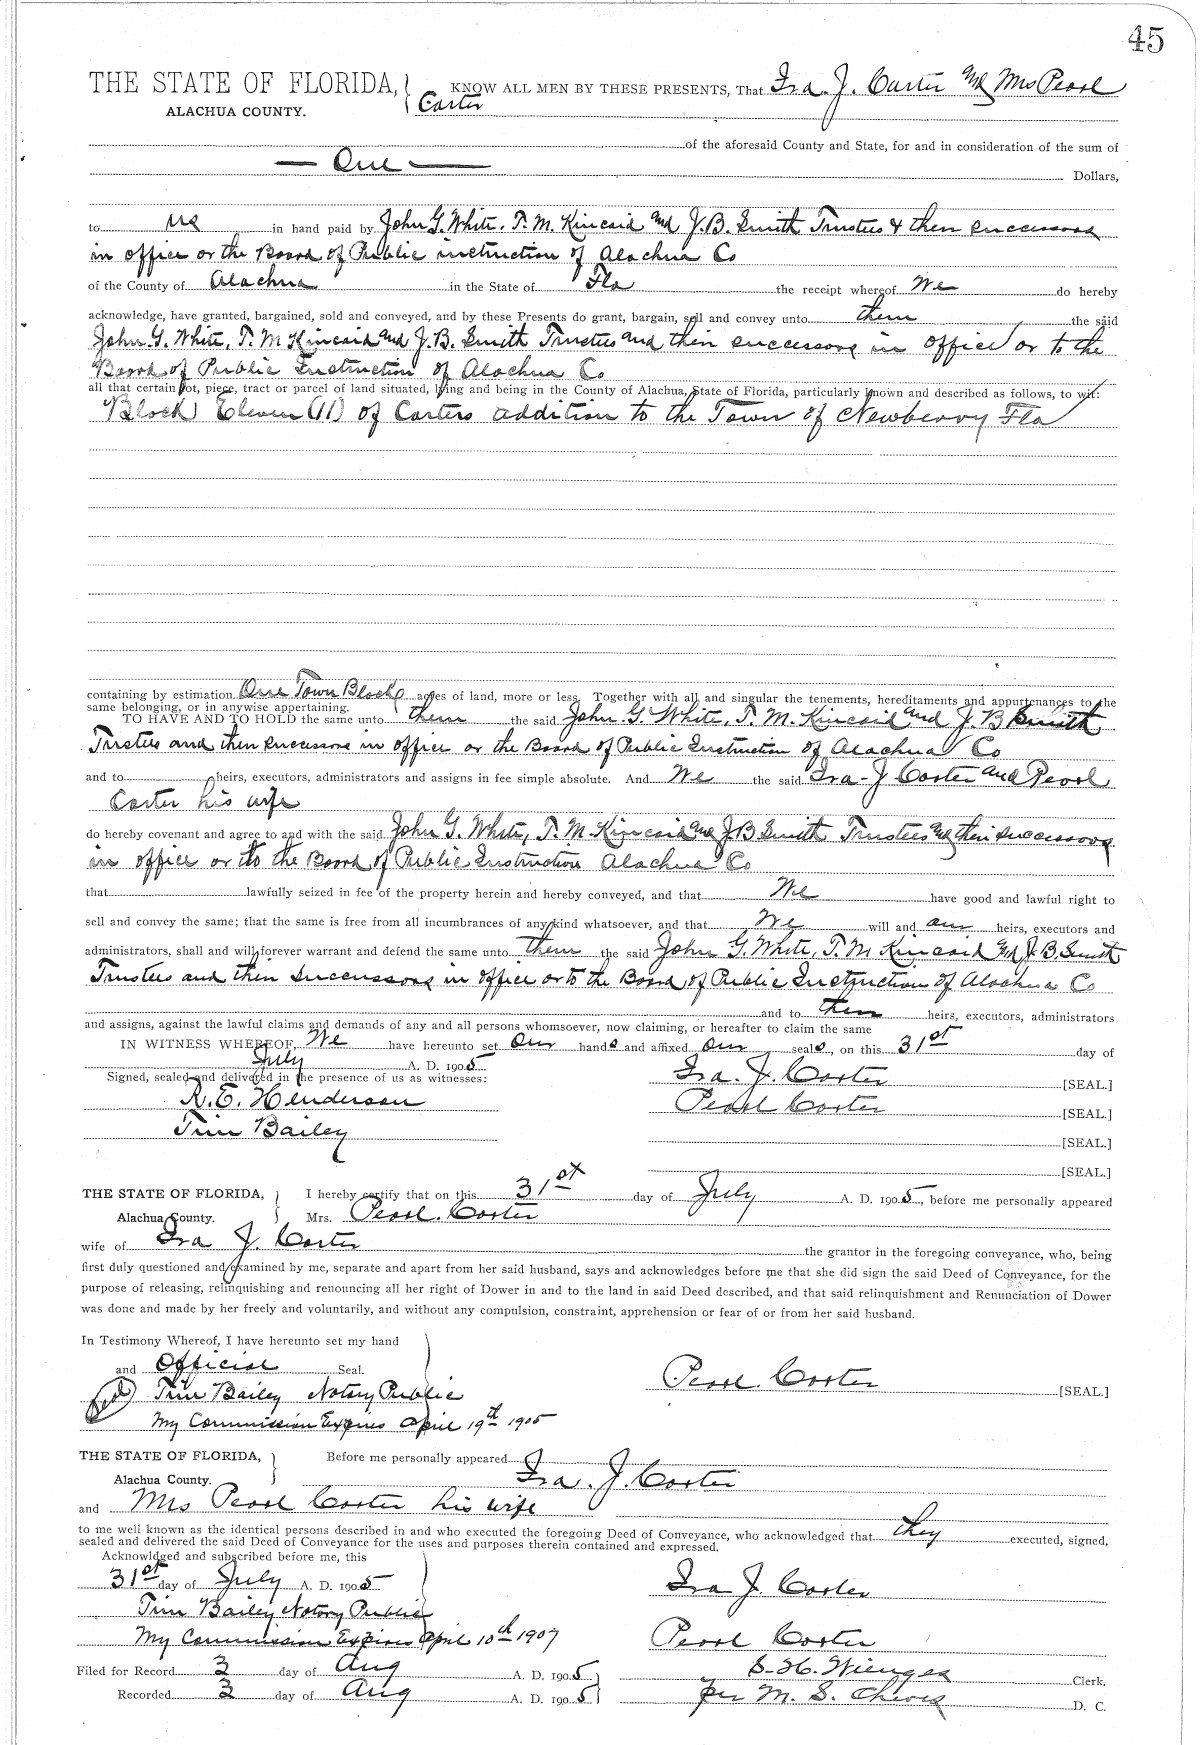 45
THE STATE OF FLORIDA, } KNOW ALL MEN BY THESE PRESENTS, That Ira. J. Carter and Mrs Pearl
ALACHUA COUNTY. Carter
of the aforesaid County and State, for and in consideration of the sum of
— One — Dollars,
to us in hand paid by John G. White, T. M. Kincaid and J. B. Smith Trustees & their successors
in office or the Board of Public instruction of Alachua Co
of the County of Alachua in the State of Fla the receipt whereof We do hereby
acknowledge, have granted, bargained, sold and conveyed, and by these Presents do grant, bargain, sell and convey unto them the said
John G. White, T. M Kincaid and J. B. Smith Trustees and their successors in office or to the
Board of Public Instruction of Alachua Co
all that certain lot, piece, tract or parcel of land situated, lying and being in the County of Alachua, State of Florida, particularly known and described as follows, to wit:
Block Eleven (11) of Carters addition to the Town of Newberry Fla
containing by estimation One Town Block acres of land, more or less. Together with all and singular the tenements, hereditaments and appurtenances to the
same belonging, or in anywise appertaining.
TO HAVE AND TO HOLD the same unto them the said John G White, T. M. Kincaid and J. B Smith
Trustees and their successors in office or the Board of Public Instruction of Alachua Co
and to heirs, executors, administrators and assigns in fee simple absolute. And We the said Ira - J Carter and Pearl
Carter his wife
do hereby covenant and agree to and with the said John G. White, T. M. Kincaid and J B Smith Trustees and their successors
in office or to the Board of Public Instruction Alachua Co
that lawfully seized in fee of the property herein and hereby conveyed, and that We have good and lawful right to
sell and convey the same; that the same is free from all incumbrances of any kind whatsoever, and that We will and our heirs, executors and
administrators, shall and will forever warrant and defend the same unto them the said John G. White, T. M Kincaid and J. B. Smith
Trustees and their successors in office or to the Board of Public Instruction of Alachua Co
and to them heirs, executors, administrators
and assigns, against the lawful claims and demands of any and all persons whomsoever, now claiming, or hereafter to claim the same
IN WITNESS WHEREOF, We have hereunto set our hands and affixed our seals, on this 31st day of
July A. D. 1905
Signed, sealed and delivered in the presence of us as witnesses: Ira. J. Carter [SEAL.]
R. E. Henderson Pearl Carter [SEAL.]
Trim Bailey [SEAL.]
[SEAL.]
THE STATE OF FLORIDA, } I hereby certify that on this 31st day of July A. D. 1905, before me personally appeared
Alachua County. Mrs. Pearl. Carter
wife of Ira J. Carter the grantor in the foregoing conveyance, who, being
first duly questioned and examined by me, separate and apart from her said husband, says and acknowledges before me that she did sign the said Deed of Conveyance, for the
purpose of releasing, relinquishing and renouncing all her right of Dower in and to the land in said Deed described, and that said relinquishment and Renunciation of Dower
was done and made by her freely and voluntarily, and without any compulsion, constraint, apprehension or fear of or from her said husband.
In Testimony Whereof, I have hereunto set my hand
and Official Seal. Pearl Carter [SEAL.]
Trim Bailey Notary Public
My Commission Expires April 19th 1905
THE STATE OF FLORIDA, } Before me personally appeared Ira. J. Carter
Alachua County.
and Mrs Pearl Carter his wife
to me well known as the identical persons described in and who executed the foregoing Deed of Conveyance, who acknowledged that they executed, signed,
sealed and delivered the said Deed of Conveyance for the uses and purposes therein contained and expressed.
Acknowldged and subscribed before me, this
31st day of July A. D. 1905 Ira J. Carter
Trim Bailey Notary Public
My Commission Expires April 10th 1907 Pearl Carter
Filed for Record 3 day of Aug A. D. 1905 S. H. Wienges Clerk.
Recorded 3 day of Aug A. D. 1905 per M. S. Cheves D. C.